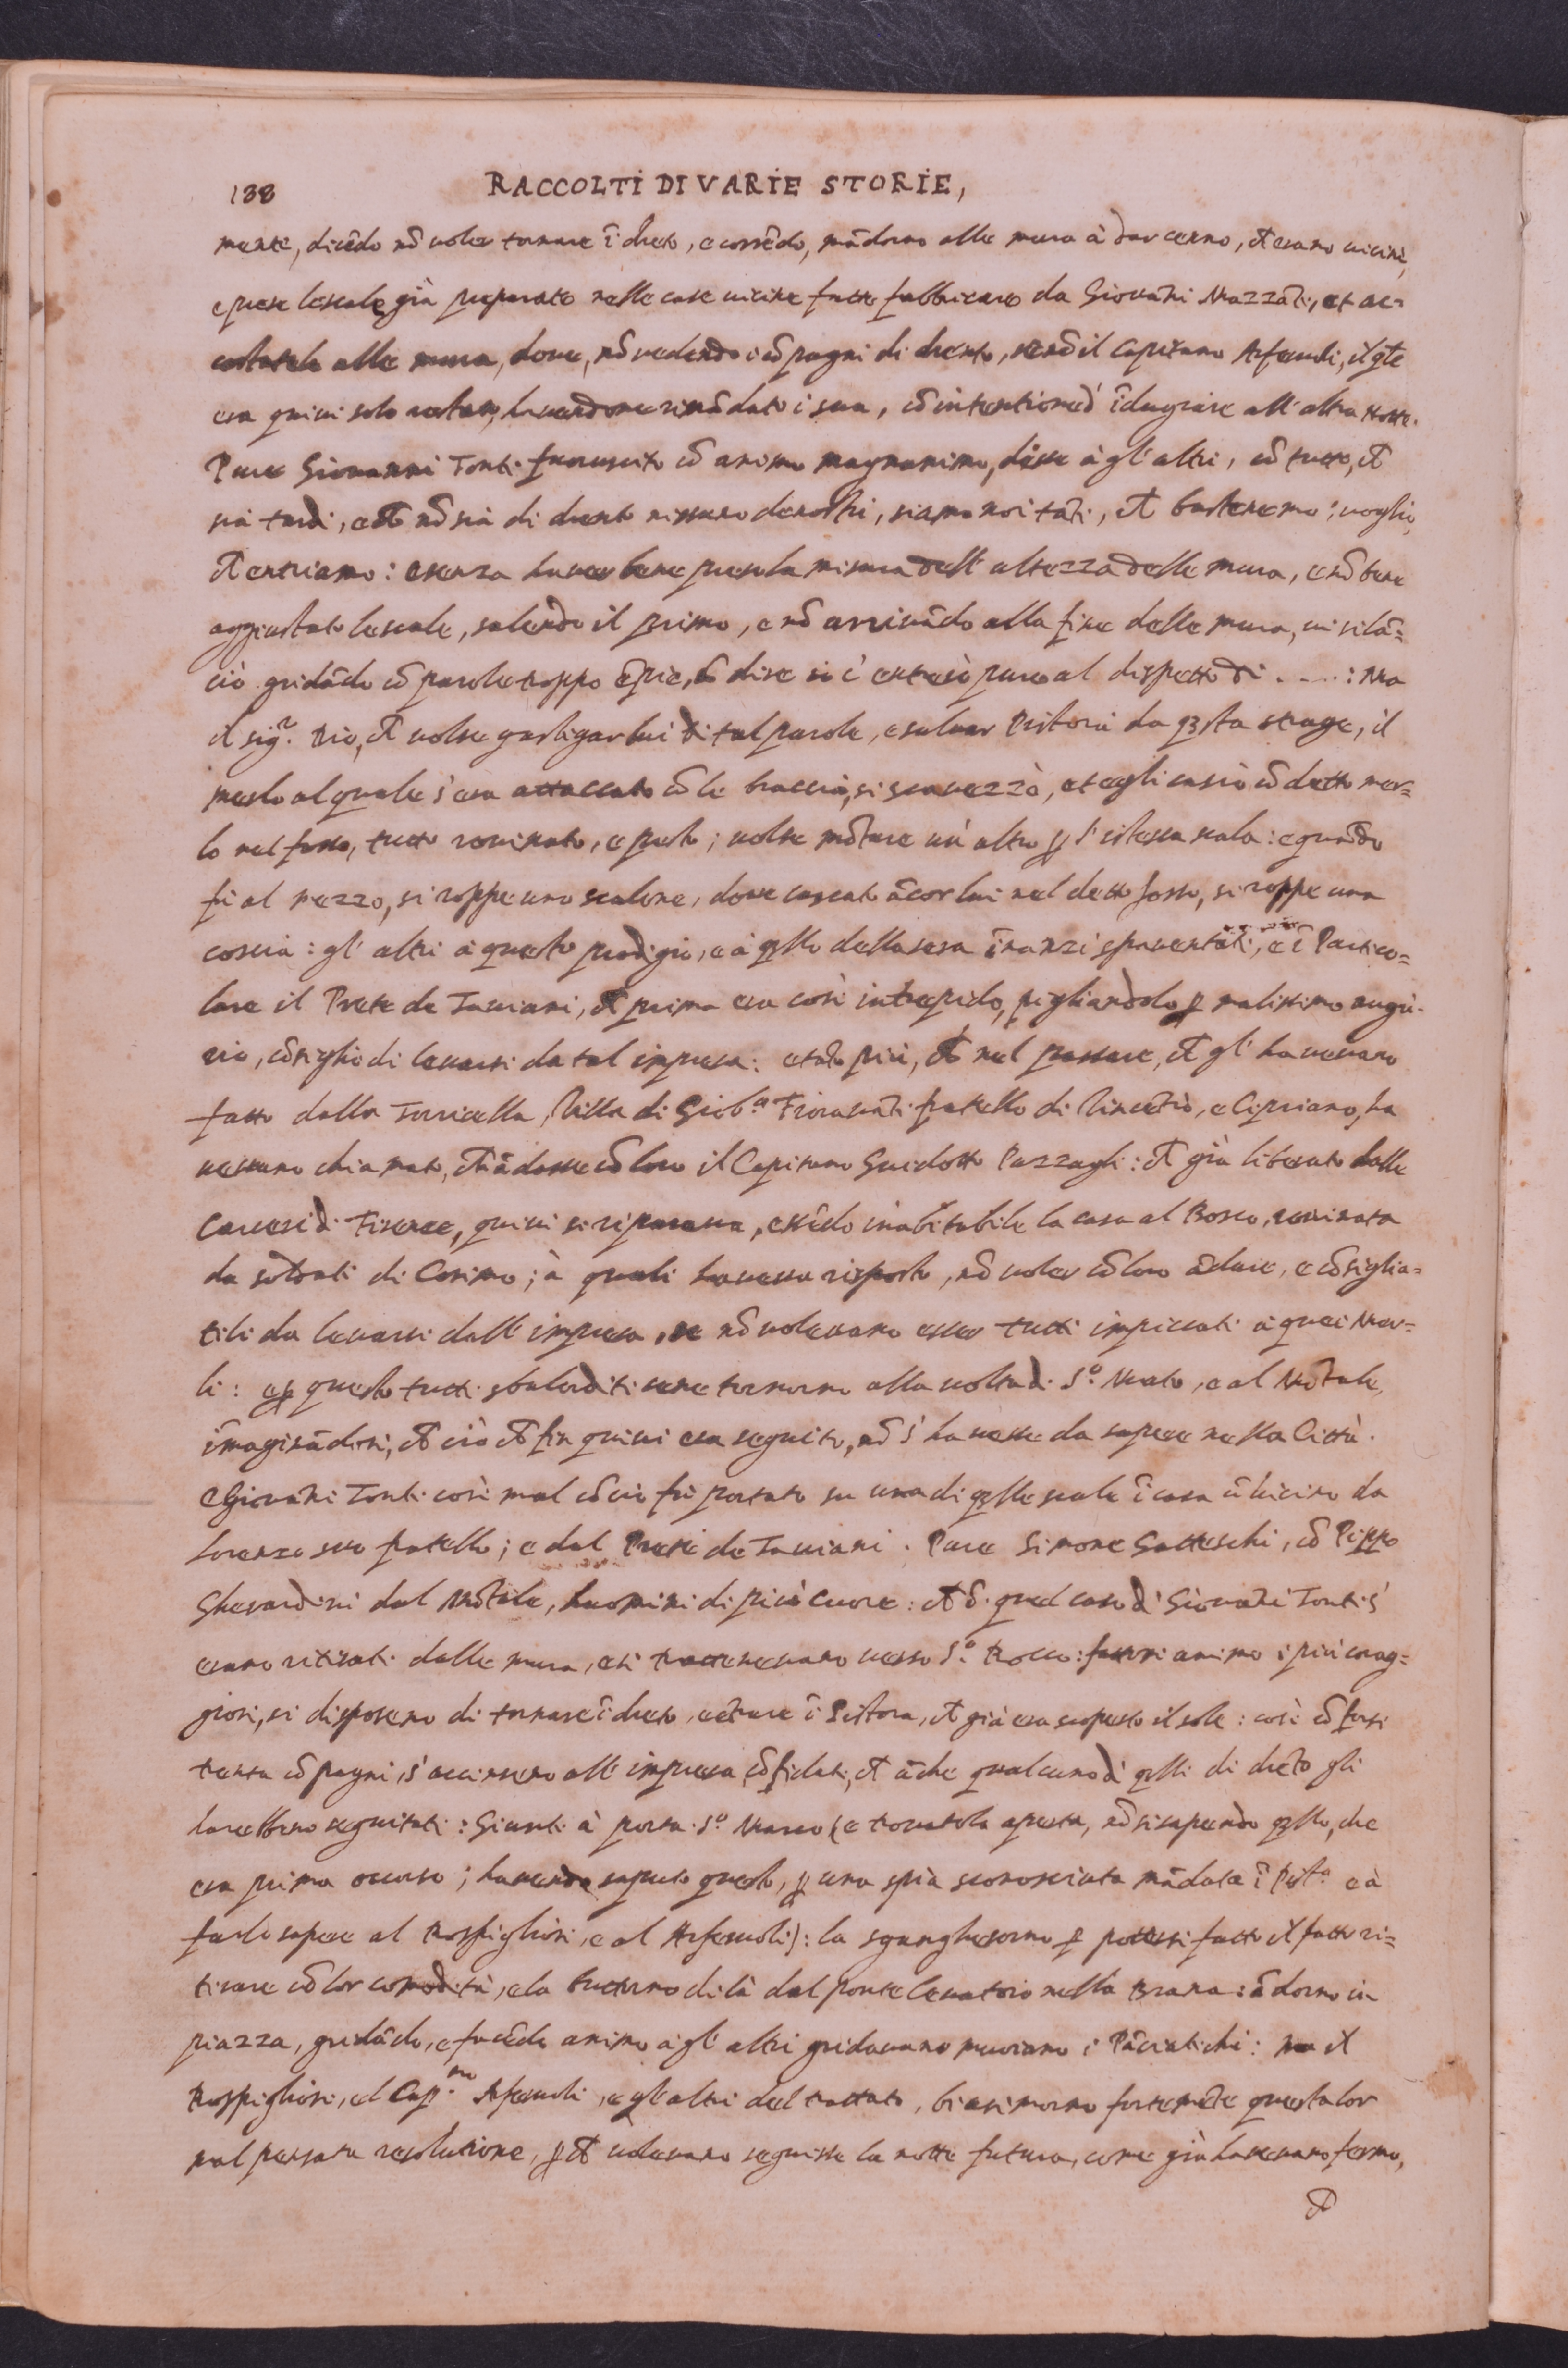 138
RACCOLTI DI VARIE STORIE,
mente, dicẽdo nõ voler tornare ĩ dreto, e corrẽdo, mãdorno alle mura à dar cenno, che erano vicini,
e prese le scale già preparate nelle case vicine fatte fabbricare da Giovãni Mazzãti, et ac=
costatele alle mura, dove, nõ vedendo i cõpagni di drento, se nõ il Capitano Arferuoli, il q̃le
era quivi solo restato, havendone rimãdato i sua, cõ intentione d' ĩdugiare all' altra notte.
Pure Giovanni Tonti fuoruscito cõ animo magnanimo, disse à gl' altri, cõ tutto, che
sia tardi, e che nõ sia di drento nissuno de nostri, siamo noi tãti, che basteremo; voglio,
che entriamo: e senza haver bene presa la misura dell' altezza delle mura, e nõ bene
aggiustato le scale, salendo il primo, e nõ arrivãdo alla fine delle mura, vi si lã=
ciò gridãdo cõ parole troppo ẽpie, dise si c' entrerò pure al dispetto di . . . . : Ma
il sig.r Dio, che volse gastigar lui di tal parole, e salvar Pistoia da q̃sta strage, il
merlo al quale s' era attaccato cõ le braccia, si scavezzò, et egli cascò cõ detto mer=
lo nel fosso, tutto rovinato, e pesto; volse mõtare un' altro p l' istessa scala: e quãdo
fù al mezzo, si roppe uno scalone, dove cascato ãcor lui nel detto fosso, si roppe una
coscia: gl' altri à questo prodigio, e à q̃llo della sera ĩnanzi spaventati, e ĩ Partico=
lare il Prete de Taviani, che prima era così intrepido, pigliandolo p malissimo augu=
rio, cõsigliò di levarsi da tal impresa: e tãto più, che nel passare, che gl' havevano
fatto dalla Torricella, Villa di Giob.a Fioravãti fratello di Vincẽtio, e Cipriano, ha
vevano chiamato, ch' ãdasse cõ loro il Capitano Guidotto Pazzagli: che già liberato dalle
Carceri di Firenze, quivi si riparava, essẽdo inabitabile la casa al Bosco, rovinata
da soldati di Cosimo; à quali haveva risposto, nõ voler cõ loro ãdare, e cõsiglia=
tili da levarsi dall' impresa, se nõ volevano esser tutti impiccati à quei Mer=
li: e p questo tutti sbalorditi se ne tornorno alla volta di S.o Meato, e al Mõtale,
ĩmaginãdosi, che ciò che fin quivi era seguito, nõ s' havesse da sapere nella Città.
e Giovãni Tonti così mal cõcio fù portato su una di q̃lle scale ĩ casa ũ vicino da
Lorenzo suo fratello; e dal Prete de Taviani. Pure Simone Gatteschi, cõ Pippo
Gherardini dal Mõtale, huomini di più cuore: che p quel caso di Giovãni Tonti s'
erano ritirati dalle mura, e si trattenevano verso S.o Rocco: fattosi animo i più corag=
giosi, si disposero di tornare ĩ dreto, e ẽtrare ĩ Pistoia, che già era scoperto il sole: così cõ forsi
trenta cõpagni, s' accinsero all' impresa, cõfidati, che ãche qualcuno di q̃lli di drẽto gli
harebbero seguitati: Giunti à porta S.o Marco (e trovatola aperta, nõ si sapendo q̃llo, che
era prima occorso; havendo saputo questo, p una spia sconosciuta mãdata ĩ Pist.a e à
farlo sapere al Rospigliosi, e al Arferuoli): la sgangherorno p potersi fatto il fatto ri=
tirare cõ lor comodità, e la buttorno di là dal ponte levatoio nella Brana: ãdorno in
piazza, gridãdo, e facẽdo animo à gl' altri gridavano muoiano i Pãciatichi: ma il
Rospigliosi, el Cap.no Arferuoli, e gl' altri del trattato, biasimorno fortemẽte questa lor
mal pensata resolutione, p che volevano seguisse la notte futura, come già havevano fermo,
che